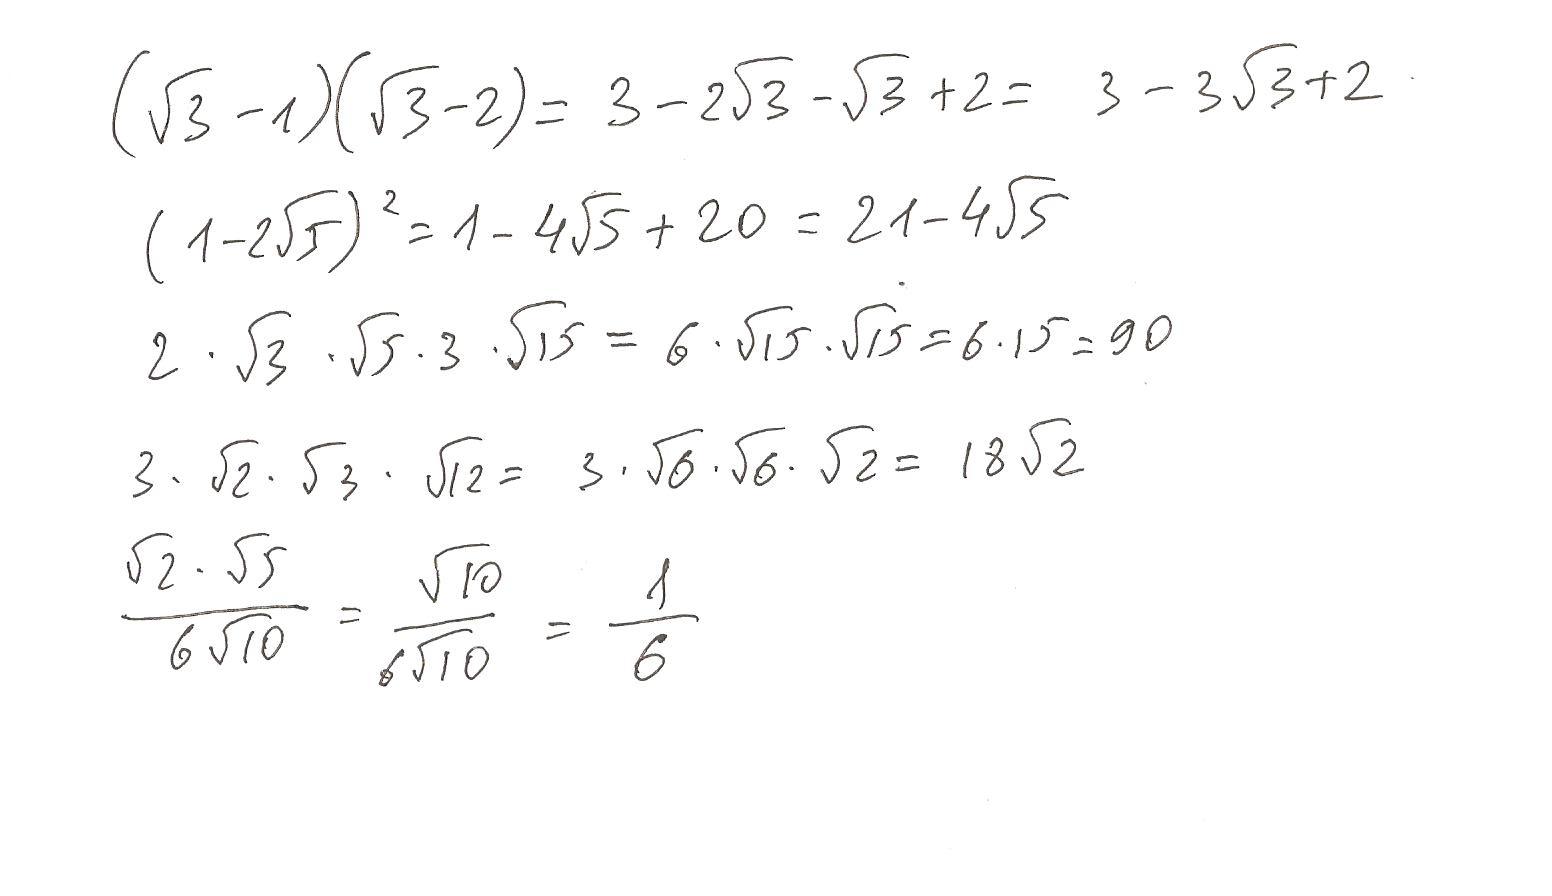 (√3 - 1)(√3 - 2) = 3 - 2√3 - √3 + 2 = 3 - 3√3 + 2
(1 - 2√5)² = 1 - 4√5 + 20 = 21 - 4√5
2 · √3 · √5 · 3 · √15 = 6 · √15 · √15 = 6 · 15 = 90
3 · √2 · √3 · √12 = 3 · √6 · √6 · √2 = 18√2
(√2 · √5)/(6√10) = √10/(6√10) = 1/6